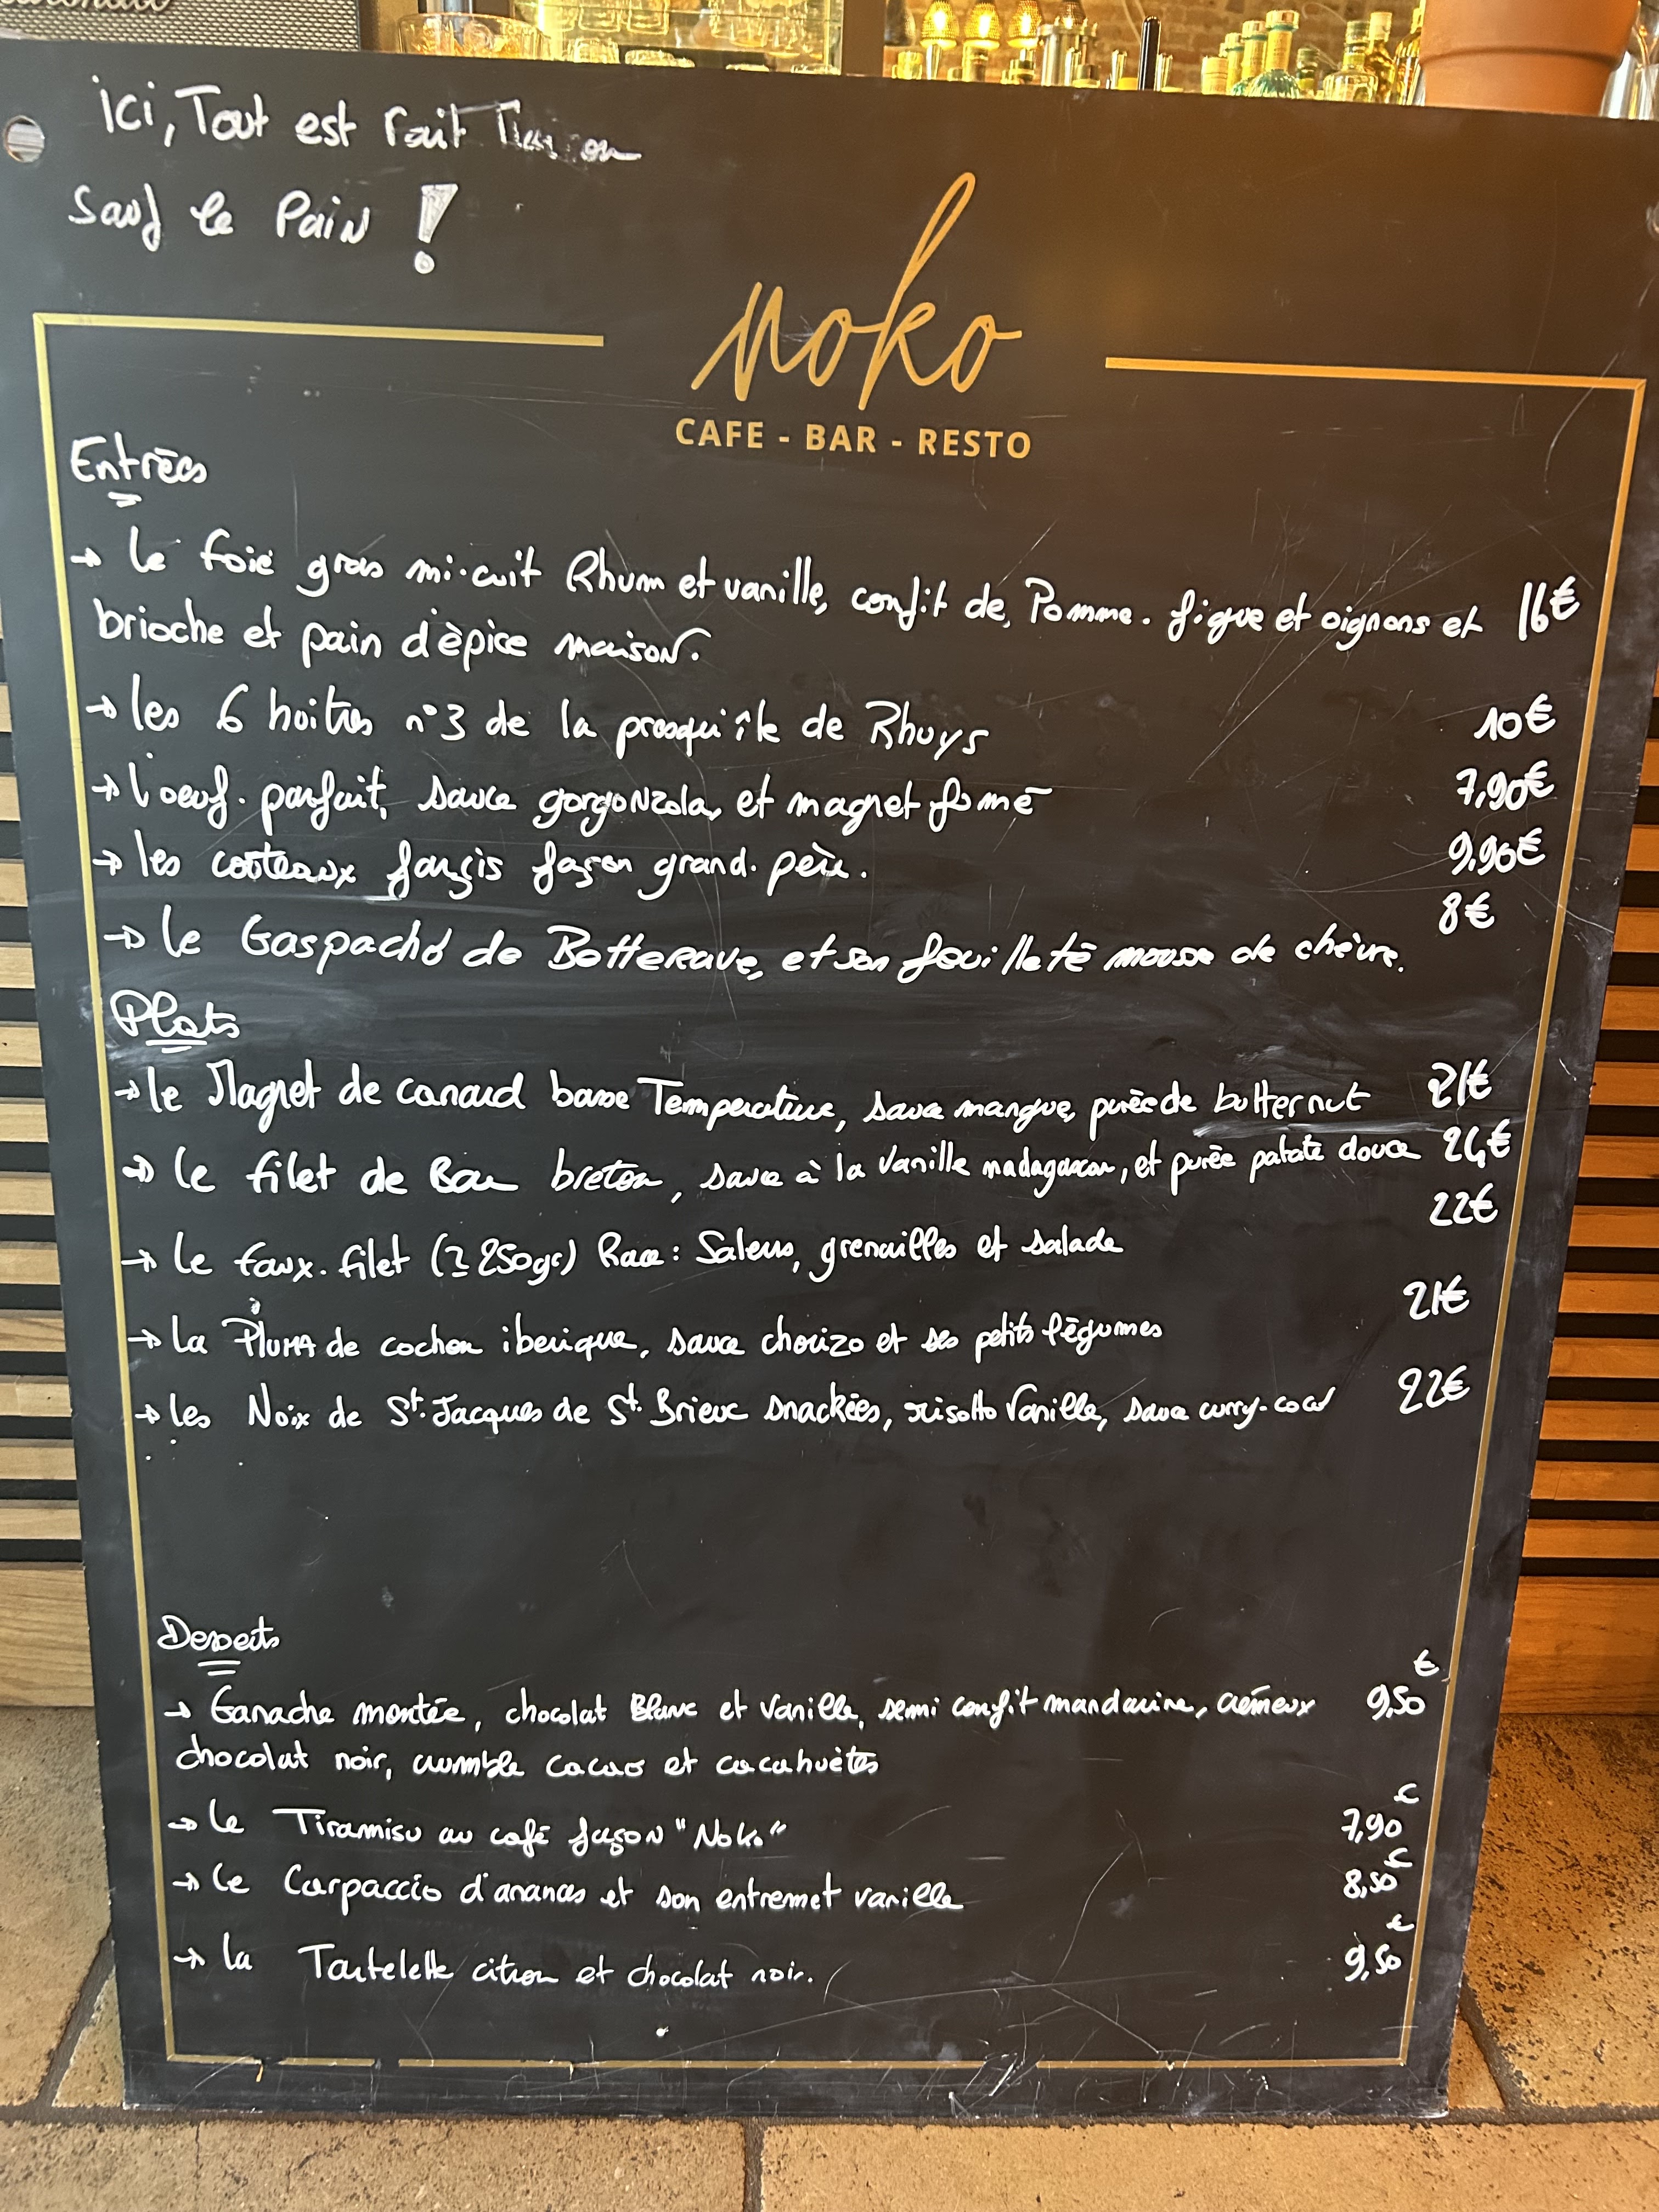 ici, Tout est fait
sauf le Pain !
noko
CAFE - BAR - RESTO
Entrées
→ le foie gras mi-cuit Rhum et vanille, confit de Pomme. figue et oignons et 16€
brioche et pain d'èpice maison.
→ les 6 huitres n°3 de la presqu'île de Rhuys 10€
→ l'oeuf. parfait, sauce gorgonzola, et magret fumé 7,90€
→ les couteaux farçis façon grand. père. 9,90€
→ le Gaspacho de Betterave, et son feuilleté mousse de chèvre. 8€
Plats
→ le Magret de canard basse Temperature, sauce mangue, purée de butternut 21€
→ le filet de Bar breton, sauce à la Vanille madagascar, et purée patate douce 24€
→ le faux. filet (≥ 250gr) Race: Salers, grenailles et salade 22€
→ la PLUMA de cochon iberique, sauce chorizo et ses petits légumes 21€
→ les Noix de St. Jacques de St. Brieuc snackées, risotto Vanille, sauce curry-coco 22€
Desserts
→ Ganache montée, chocolat Blanc et Vanille, semi confit mandarine, crémeux 9,50€
chocolat noir, crumble cacao et cacahuètes
→ le Tiramisu au café façon "Noko" 7,90€
→ le Carpaccio d'ananas et son entremet vanille 8,50€
→ la Tartelette citron et chocolat noir. 9,50€